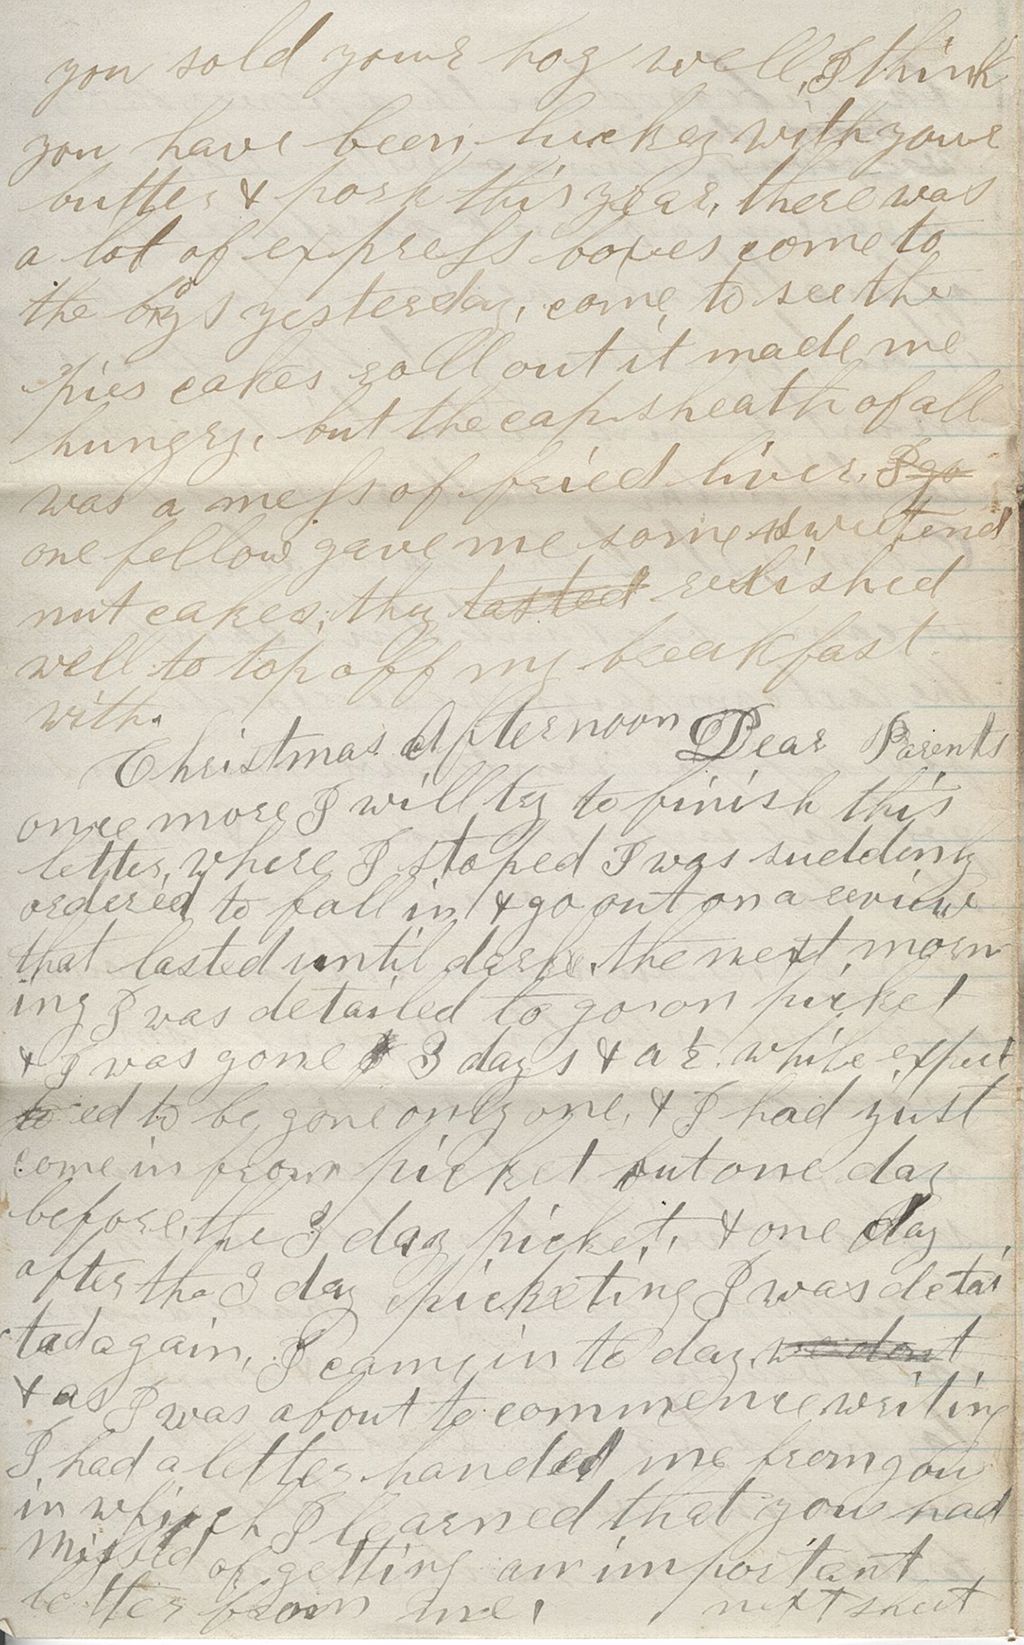 you sold youre hog well, I think
you have been luckey with youre
butter & pork this year, there was
a lot of express boxes come to
the boys yesterday, come to see the
pies cakes roll out it made me
hungry, but the capsheath of all
was a mess of fried liver, I go
one fellow gave me some sweetend
nut cakes, they tasted relished
well to top off my breakfast
with.
Christmas Afternoon Dear Parents
once more I will try to finish this
letter, where I stoped I was suddenly
ordered to fall in & go out on a review
that lasted until dark, the next morn
ing I was detailed to go on picket
& I was gone 3 days & a ½. while expect
ed to be gone only one, & I had just
come in from picket but one day
before, the 3 day picket, & one day
after the 3 day picketing I was detai
tad again, I came in to day, we dont
& as I was about to commence writing
I had a letter handed me from you
in which I learned that you had
missed of getting an important
letter from me, next sheet